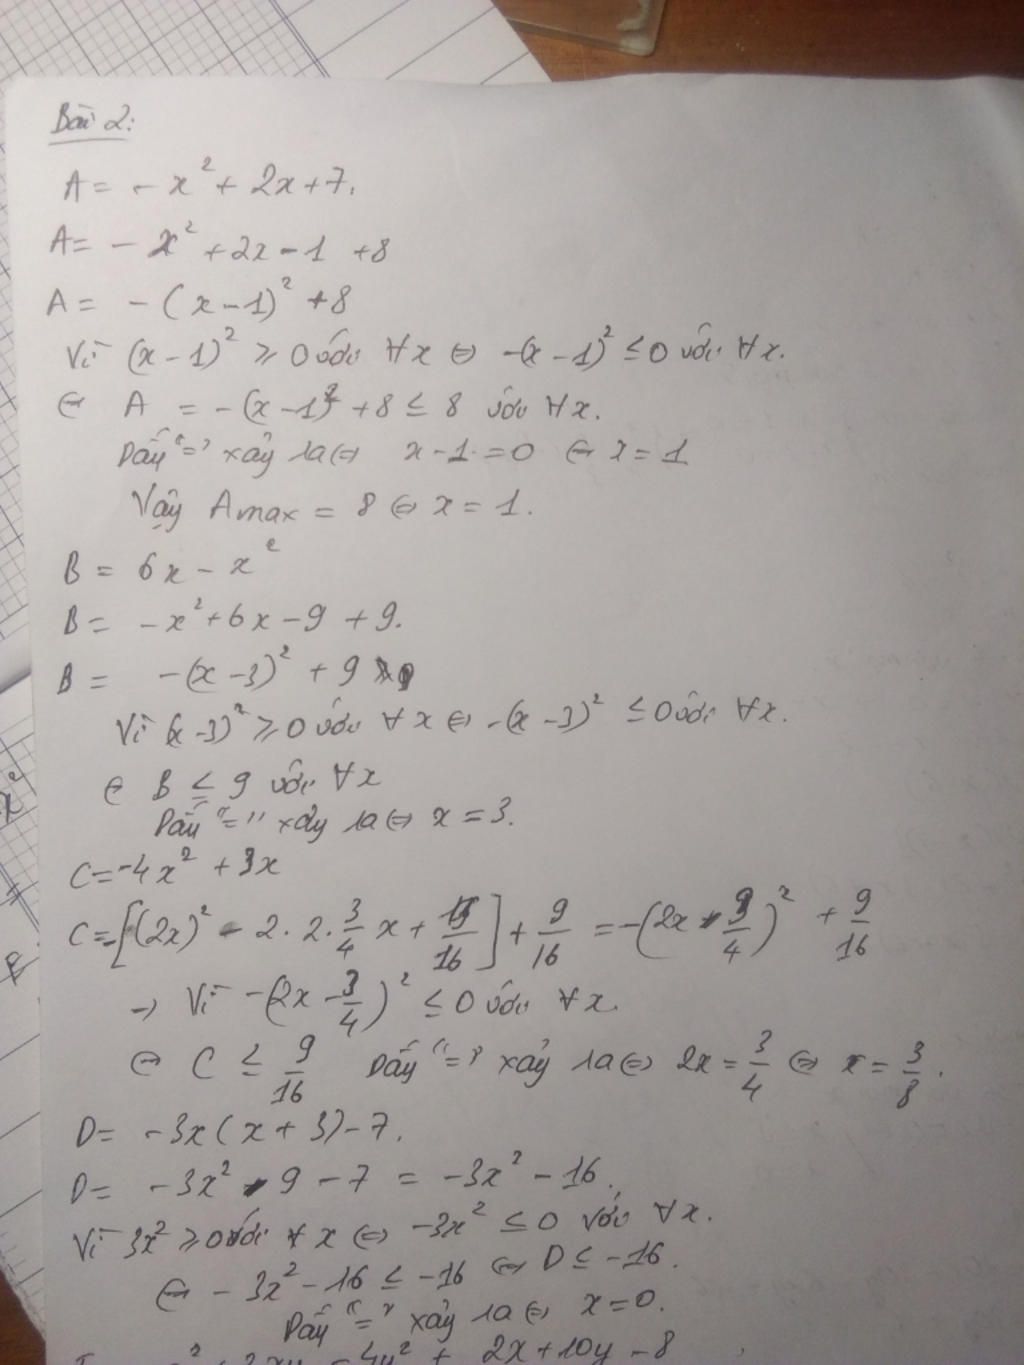 Bài 2:
A = - x² + 2x + 7.
A = - x² + 2x - 1 + 8
A = - (x - 1)² + 8
Vì (x - 1)² ≥ 0 với ∀x ⇔ -(x - 1)² ≤ 0 với ∀x.
⇔ A = -(x - 1)² + 8 ≤ 8 với ∀x.
Dấu "=" xảy ra ⇔ x - 1 = 0 ⇔ x = 1
Vậy Amax = 8 ⇔ x = 1.
B = 6x - x²
B = -x² + 6x - 9 + 9.
B = -(x - 3)² + 9
Vì (x - 3)² ≥ 0 với ∀x ⇔ -(x - 3)² ≤ 0 với ∀x.
⇔ B ≤ 9 với ∀x
Dấu "=" xảy ra ⇔ x = 3.
C = -4x² + 3x
C = -[(2x)² - 2.2.3/4 x + 9/16] + 9/16 = -(2x - 3/4)² + 9/16
→ Vì -(2x - 3/4)² ≤ 0 với ∀x.
⇔ C ≤ 9/16 Dấu "=" xảy ra ⇔ 2x = 3/4 ⇔ x = 3/8.
D = -3x(x + 3) - 7.
D = -3x² - 9 - 7 = -3x² - 16.
Vì 3x² ≥ 0 với ∀x ⇔ -3x² ≤ 0 với ∀x.
⇔ -3x² - 16 ≤ -16 ⇔ D ≤ -16.
Dấu "=" xảy ra ⇔ x = 0.
- 4y² + 2x + 10y - 8